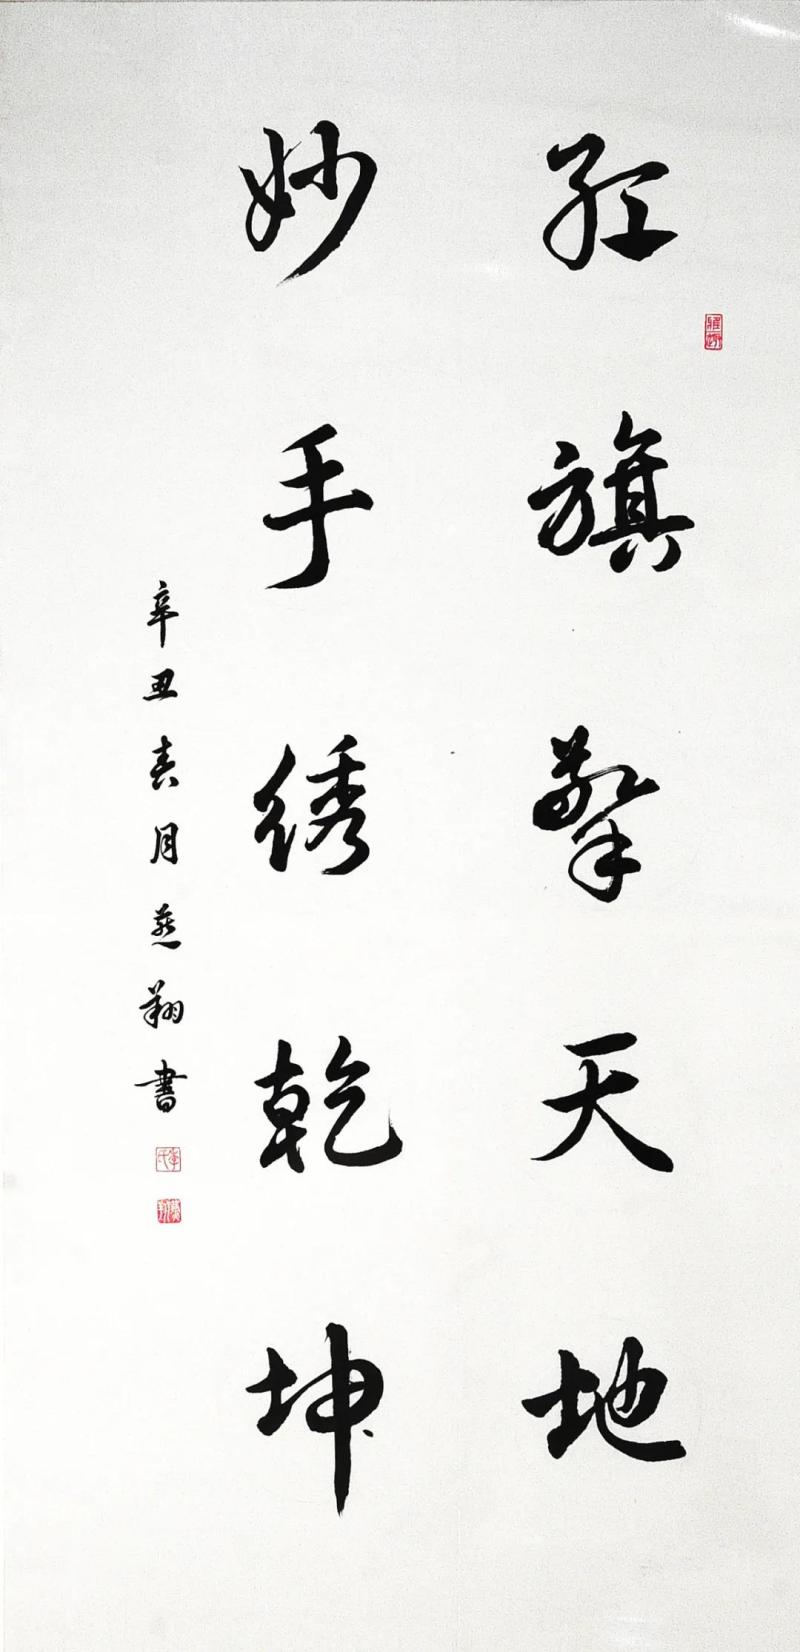 红旗擎天地
妙手绣乾坤
辛丑春月燕翔書